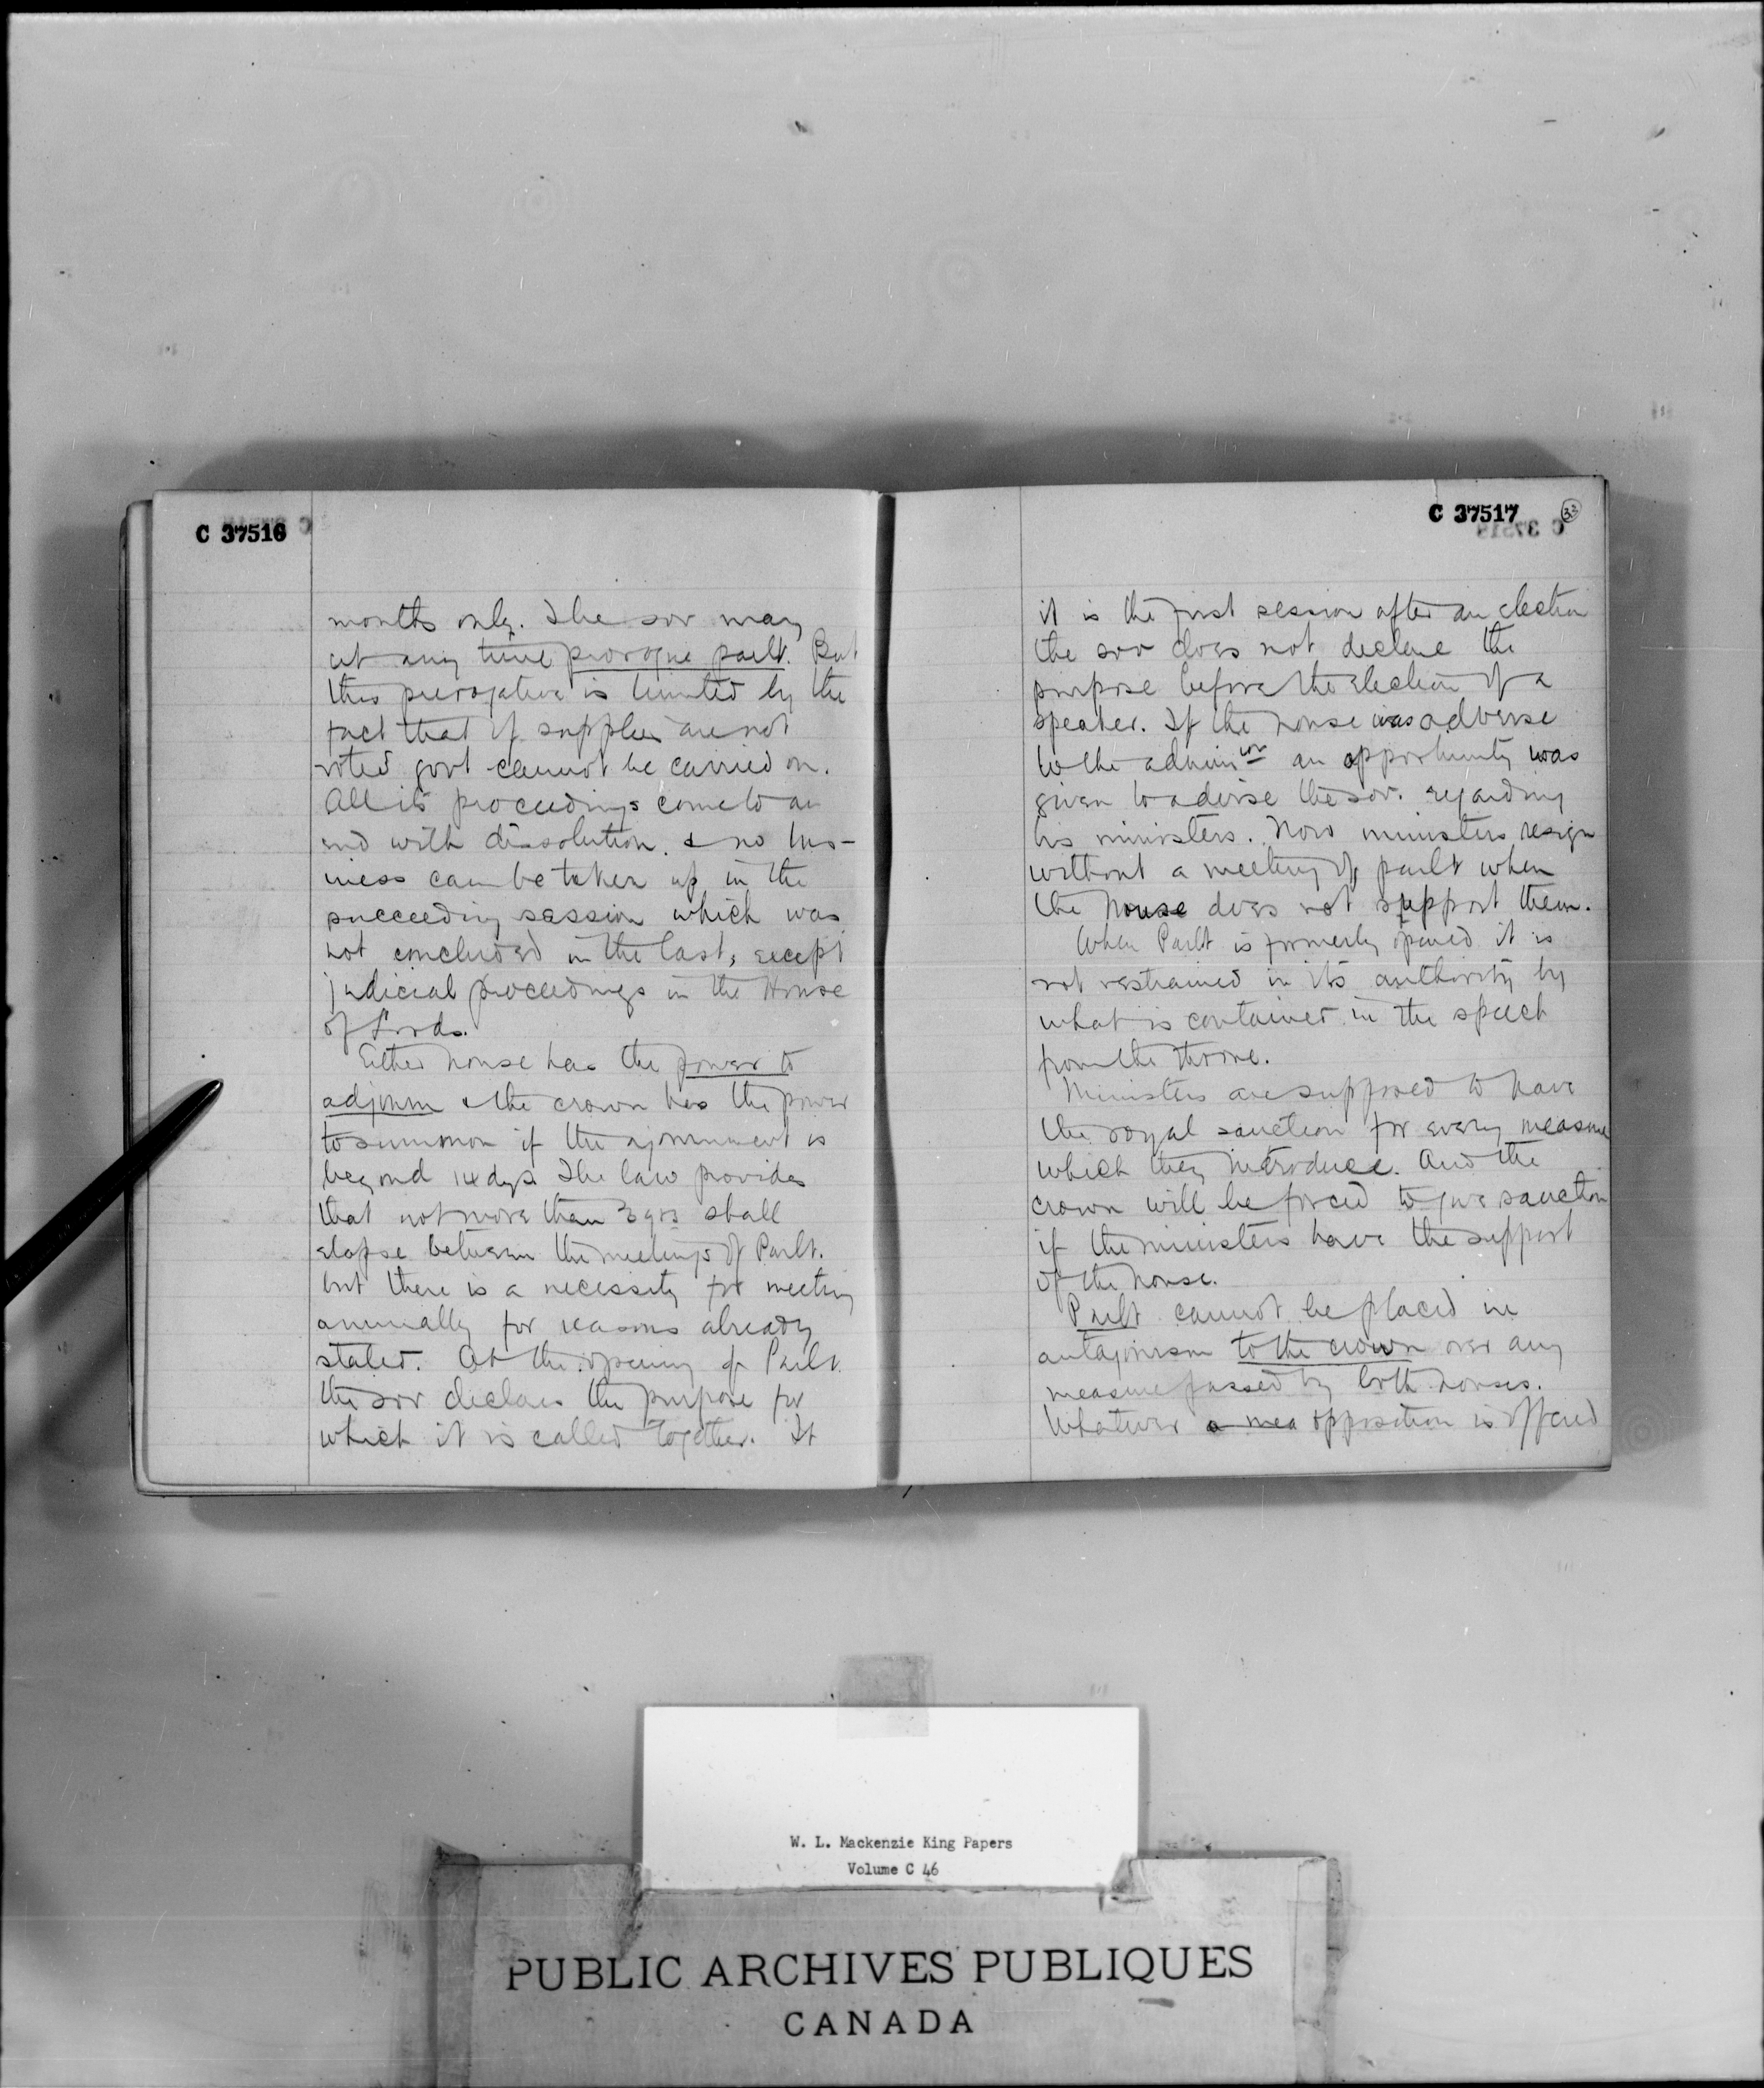 C 37516
months only. The sov may
at any time prorogue parlt. But
this prerogative is limited by the
fact that if supplies are not
voted govt cannot be carried on.
All its proceedings come to an
end with dissolution. & no bus-
iness can be taken up in the
succeeding session which was
not concluded in the last, except
judicial proceedings in the House
of Lords.
Either house has the power to
adjourn & the crown has the power
to summon if the ajournment is
beyond 14 dys. The law provides
that not more than 3 yrs shall
elapse between the meetings of Parlt.
but there is a necessity for meeting
annually for reasons already
stated. At the opening of Parlt.
the sov declares the purpose for
which it is called together. If
C 37517
33
it is the first session after an election
the sov does not declare the
purpose before the election of a
speaker. If the house was adverse
to the adminion an opportunity was
given to advise the sov. regarding
his ministers. Now ministers resign
without a meeting of parlt when
the house does not support them.
When Parlt is formerly opened it is
not restrained in its authority by
what is contained in the speech
from the throne.
Ministers are supposed to have
the royal sanction for every measure
which they introduce. And the
crown will be forced to give sanction
if the ministers have the support
of the house.
Parlt cannot be placed in
antagonism to the crown over any
measure passed by both houses.
Whatever a mea opposition is offered
W. L. Mackenzie King Papers
Volume C 46
PUBLIC ARCHIVES PUBLIQUES
CANADA